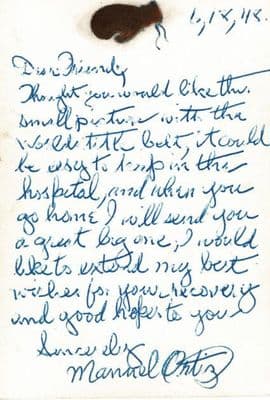 6,18,48.
Dear Friend,
Thought you would like this
small picture with the
world title belt, it could
be easy to keep in the
hospital, and when you
go home I will send you
a great big one, I would
like to extend my best
wishes for your recovery
and good hopes to you
Sincerely
Manuel Ortiz